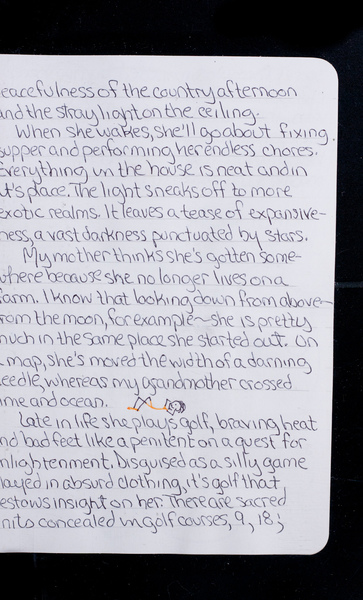 eacefulness of the country afternoon
and the stray light on the ceiling.
When she wakes, she'll go about fixing
supper and performing her endless chores.
Everything in the house is neat and in
it's place. The light sneaks off to more
exotic realms. It leaves a tease of expansive-
ness, a vast darkness punctuated by stars.
My mother thinks she's gotten some-
where because she no longer lives on a
farm. I know that looking down from above—
from the moon, for example— she is pretty
much in the same place she started out. On
a map, she's moved the width of a darning
needle, whereas my grandmother crossed
time and ocean.
Late in life she plays golf, braving heat
nd bad feet like a penitent on a quest for
nlightenment. Disguised as a silly game
layed in absurd clothing, it's golf that
estows insight on her. There are sacred
nits concealed in golf courses, 9, 18;